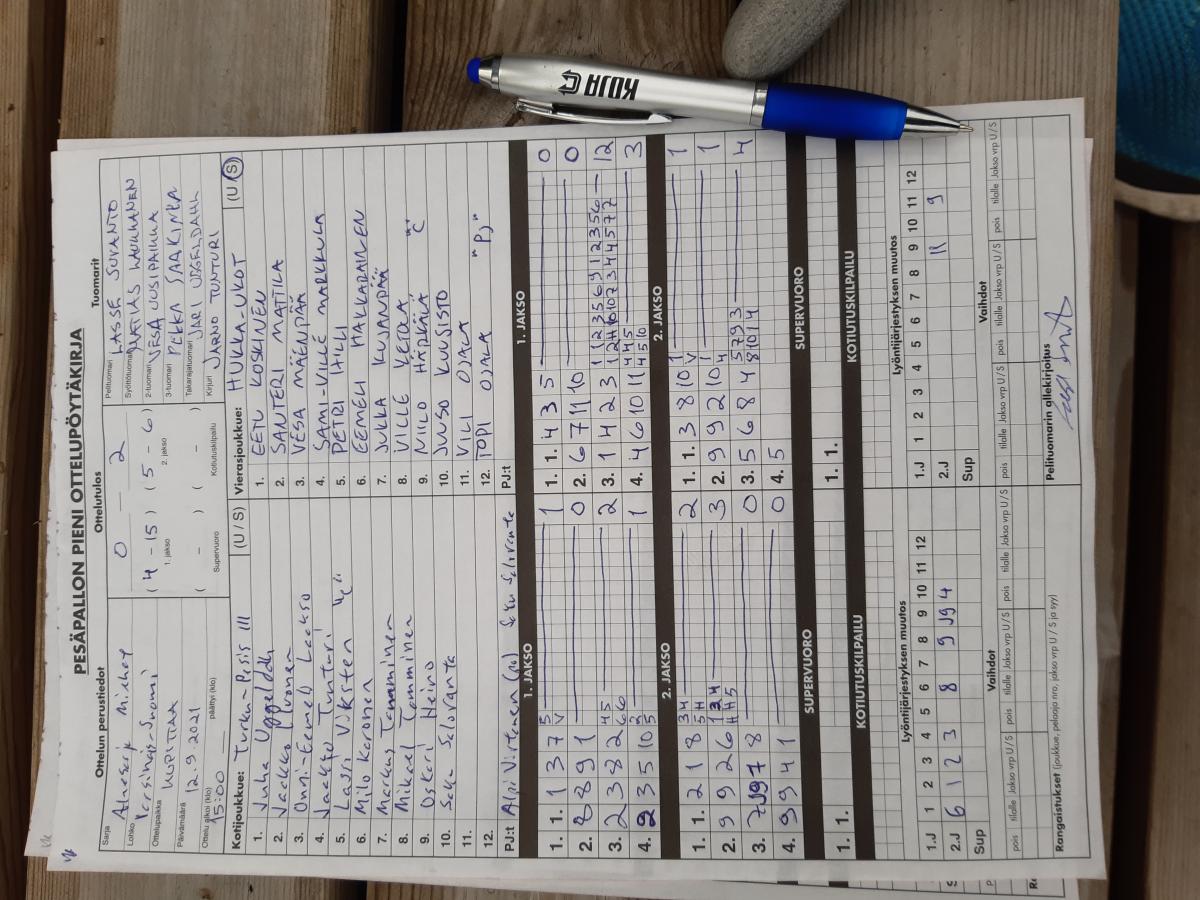 PESÄPALLON PIENI OTTELUPÖYTÄKIRJA
Ottelun perustiedot
Sarja
Aluesarja Miehet
Lohko
Varsinais-Suomi
Ottelupaikka
KUPITTAA
Päivämäärä
12.9.2021
Ottelu alkoi (klo)
15:00
päättyi (klo)
Ottelutulos
0 2
( 4 - 15 ) ( 5 - 6 )
1. jakso 2. jakso
( - ) ( - )
Supervuoro Kotiutuskilpailu
Tuomarit
Pelituomari LASSE SUVANTO
Syöttötuomari
2-tuomari VESA UUSIPAIKKA
3-tuomari PEKKA SARKINKA
Takarajatuomari JARI UGGELDAHL
Kirjuri JARNO TUNTURI
Kotijoukkue: Turku-Pesis III (U / S)
1. Juha Uggeldahl
2. Jaakko Piironen
3. Onni-Eemeli Laakso
4. Jaakko Tunturi
5. Lassi Viksten "C"
6. Milo Karonen
7. Markus Tamminen
8. Mikael Tamminen
9. Oskari Heino
10. Seku Selovanta
11.
12.
PJ:t Alpi Virtanen Seku Selovanta
Vierasjoukkue: HUKKA-UKOT (U / S)
1. EETU KOSKINEN
2. SANTERI MATTILA
3. VESA MÄENPÄÄ
4. SAMI-VILLE MARKKULA
5. PETRI HILLI
6. EEMELI HAKKARAINEN
7. JUKKA KUJANPÄÄ
8. VILLE KETOLA
9. NIILO HÄRKÄLÄ "C"
10. JUUSO KUUSISTO
11. VILI OJALA
12. TOPI OJALA "PJ"
PJ:t
1. JAKSO
1. 1. 1 3 7 5 V 1
2. 8 8 9 1 0
3. 2 3 8 2 45 66 2
4. 2 3 5 10 5 1
2. JAKSO
1. 1. 2 1 8 34 5H 2
2. 9 9 2 6 124 HH5 3
3. 7 J9 7 8 0
4. 9 9 4 1 0
SUPERVUORO
1. 1.
KOTIUTUSKILPAILU
1. JAKSO
1. 1. 4 3 5 0
2. 6 7 11 10 0
3. 1 4 2 3 12
4. 4 6 10 11 445 4510 3
2. JAKSO
1. 1. 3 8 10 1 V 1
2. 9 9 2 10 1 4 1
3. 5 6 8 4 5793 81014 4
4. 5
SUPERVUORO
1. 1.
KOTIUTUSKILPAILU
Lyöntijärjestyksen muutos
1 2 3 4 5 6 7 8 9 10 11 12
1.J
2.J 6 1 2 3 8 9 J9 4
Sup
Vaihdot
pois tilalle Jakso vrp U / S pois tilalle Jakso vrp U / S
Rangaistukset (joukkue, pelaaja nro, jakso vrp U / S ja syy)
Lyöntijärjestyksen muutos
1 2 3 4 5 6 7 8 9 10 11 12
1.J
2.J 11 9
Sup
Vaihdot
pois tilalle Jakso vrp U / S pois tilalle Jakso vrp U / S
Pelituomarin allekirjoitus
KOJA